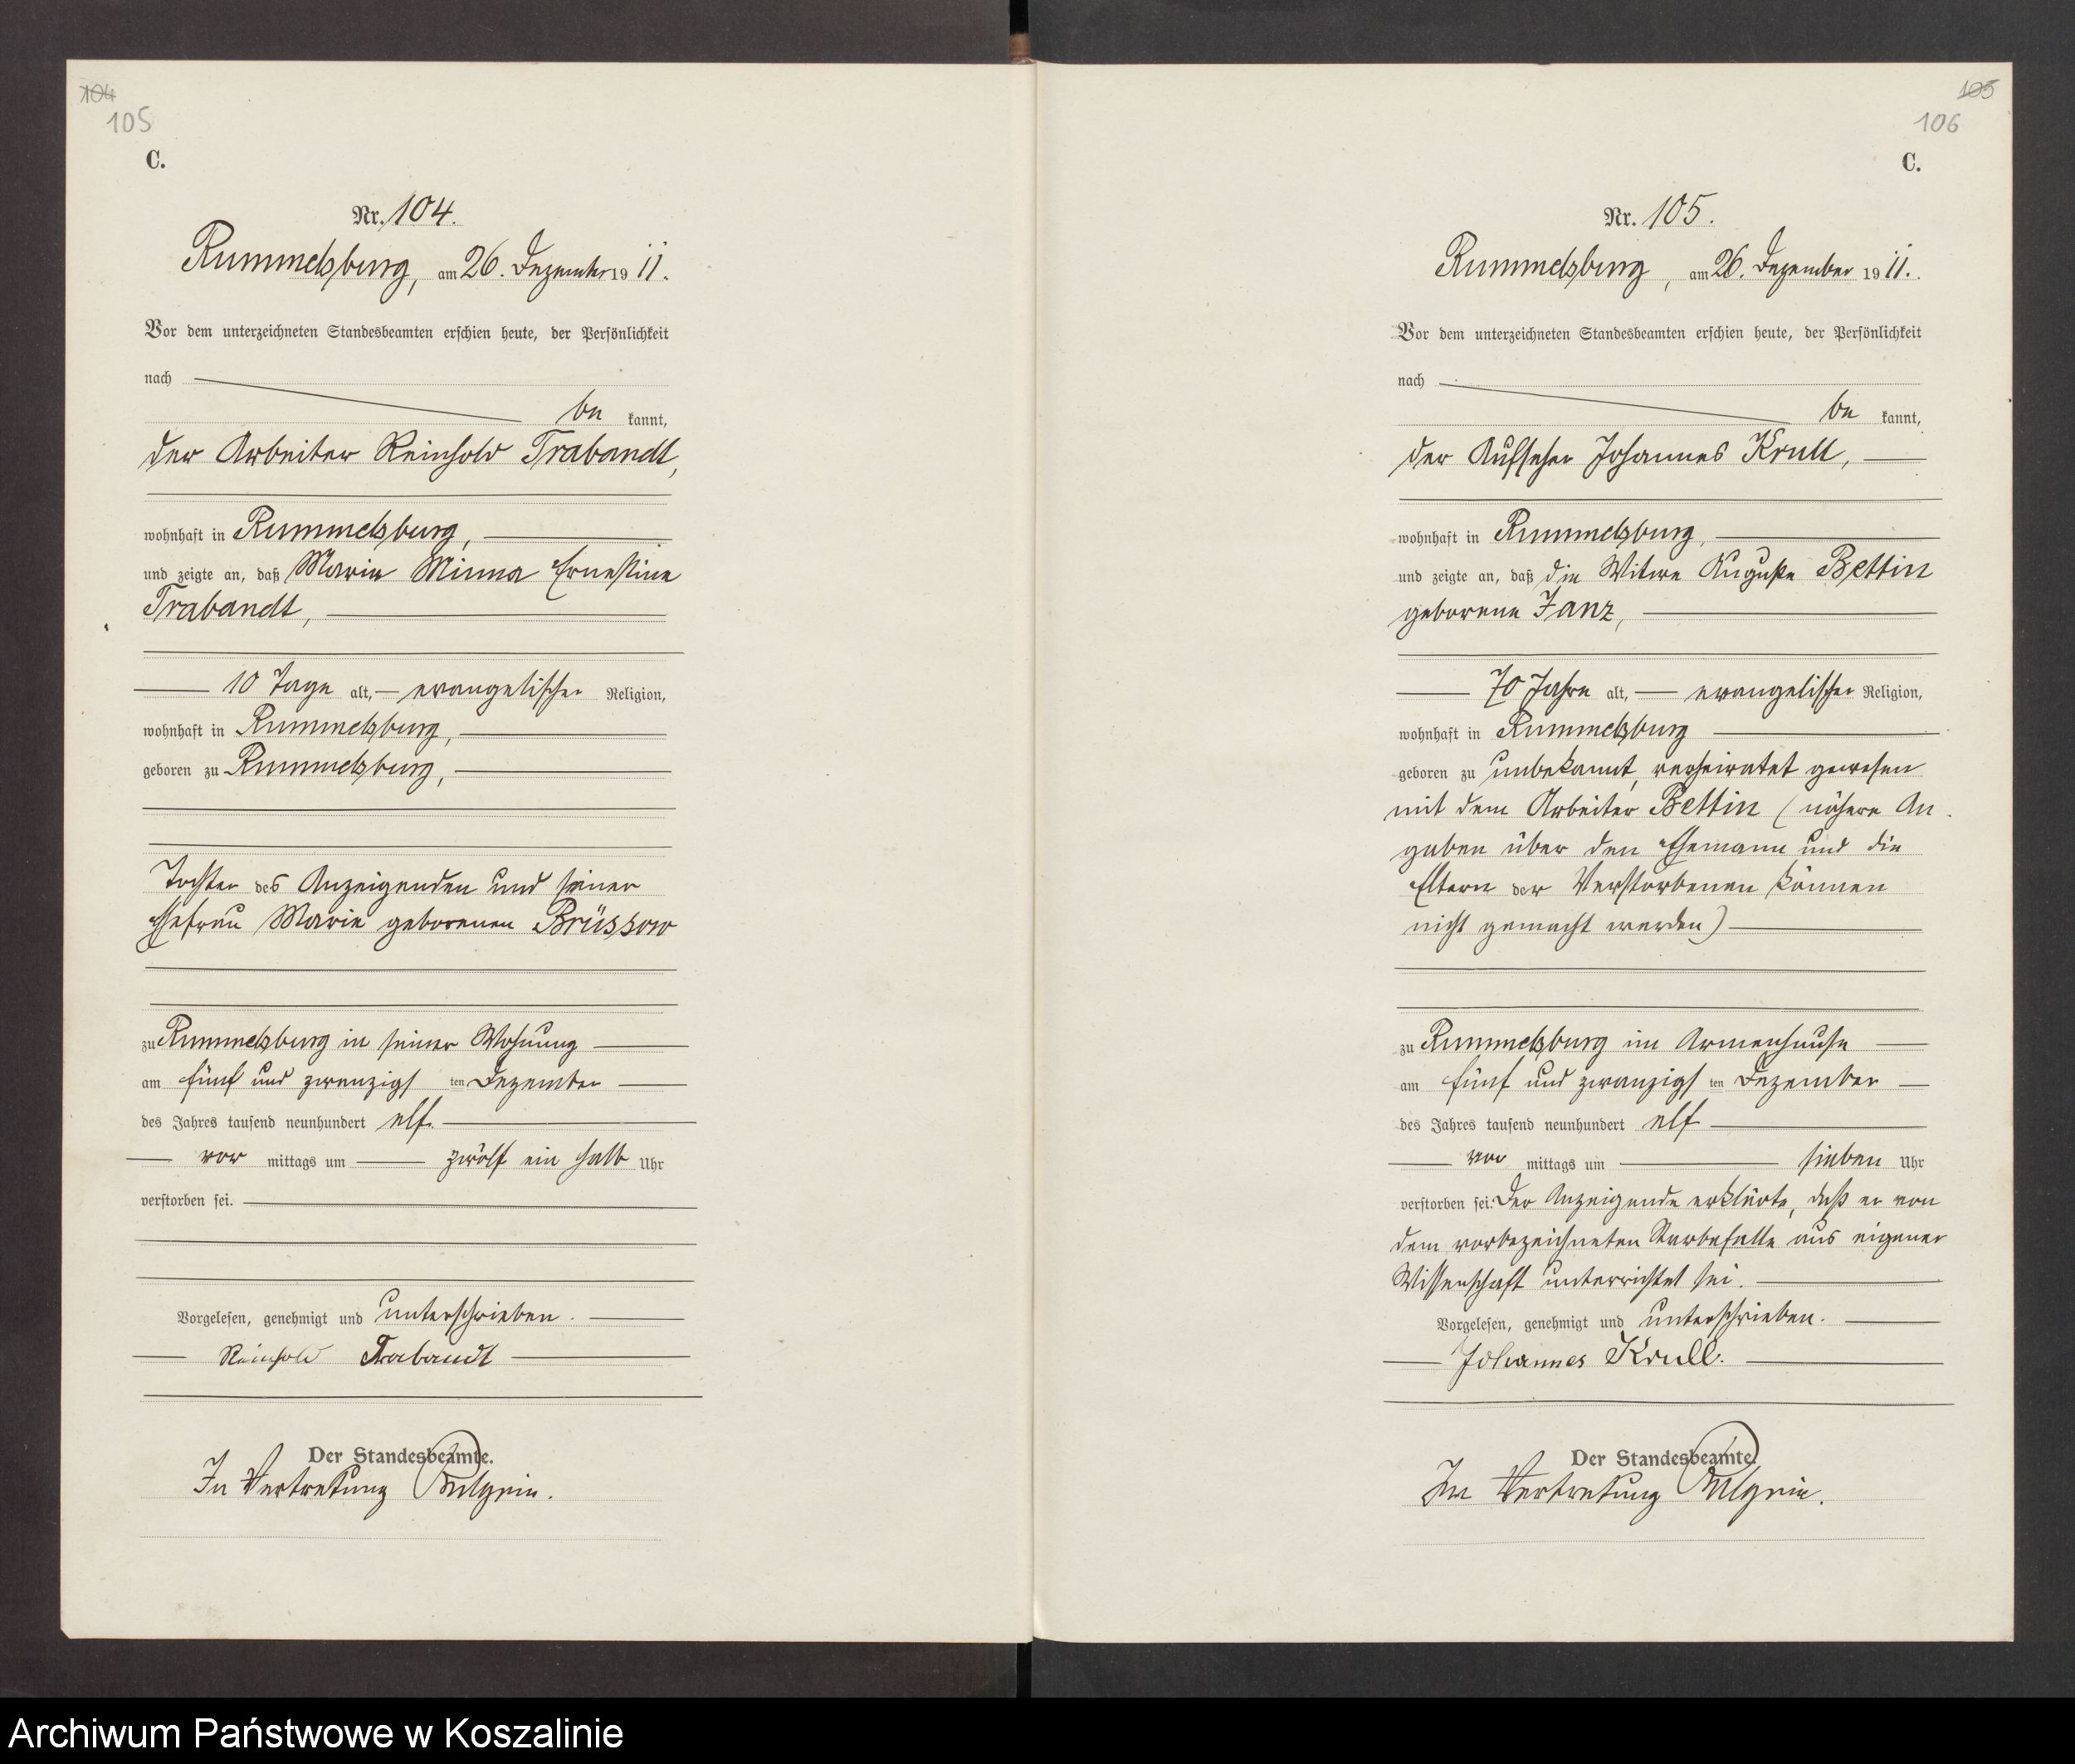 104
105
C.
Nr. 104.
Rummelsburg, am 26. Dezember 1911.
Vor dem unterzeichneten Standesbeamten erschien heute, der Persönlichkeit
nach
be kannt,
der Arbeiter Reinhold Trabandt,
wohnhaft in Rummelsburg,
und zeigte an, daß Marie Minna Ernestine
Trabandt,
10 Tage alt, evangelischer Religion,
wohnhaft in Rummelsburg,
geboren zu Rummelsburg,
Tochter des Anzeigenden und seiner
Ehefrau Marie geborenen Brüssow
zu Rummelsburg in seiner Wohnung
am fünf und zwanzigsten Dezember
des Jahres tausend neunhundert elf.
vor mittags um zwölf ein halb Uhr
verstorben sei.
Vorgelesen, genehmigt und unterschrieben.
Reinhold Trabandt
Der Standesbeamte.
In Vertretung
105
106
C.
Nr. 105.
Rummelsburg, am 26. Dezember 1911.
Vor dem unterzeichneten Standesbeamten erschien heute, der Persönlichkeit
nach
be kannt,
der Aufseher Johannes Krull,
wohnhaft in Rummelsburg,
und zeigte an, daß die Witwe Auguste Bettin
geborene Janz,
70 Jahre alt, evangelischer Religion,
wohnhaft in Rummelsburg
geboren zu unbekannt, verheiratet gewesen
mit dem Arbeiter Bettin (nähere An
gaben über den Ehemann und die
Eltern der Verstorbenen können
nicht gemacht werden)
zu Rummelsburg im Armenhause
am fünf und zwanzigsten Dezember
des Jahres tausend neunhundert elf
vor mittags um sieben Uhr
verstorben sei. Der Anzeigende erklärte, daß er von
dem vorbezeichneten Sterbefalle aus eigener
Wissenschaft unterrichtet sei.
Vorgelesen, genehmigt und unterschrieben.
Johannes Krull.
Der Standesbeamte.
In Vertretung
Archiwum Państwowe w Koszalinie